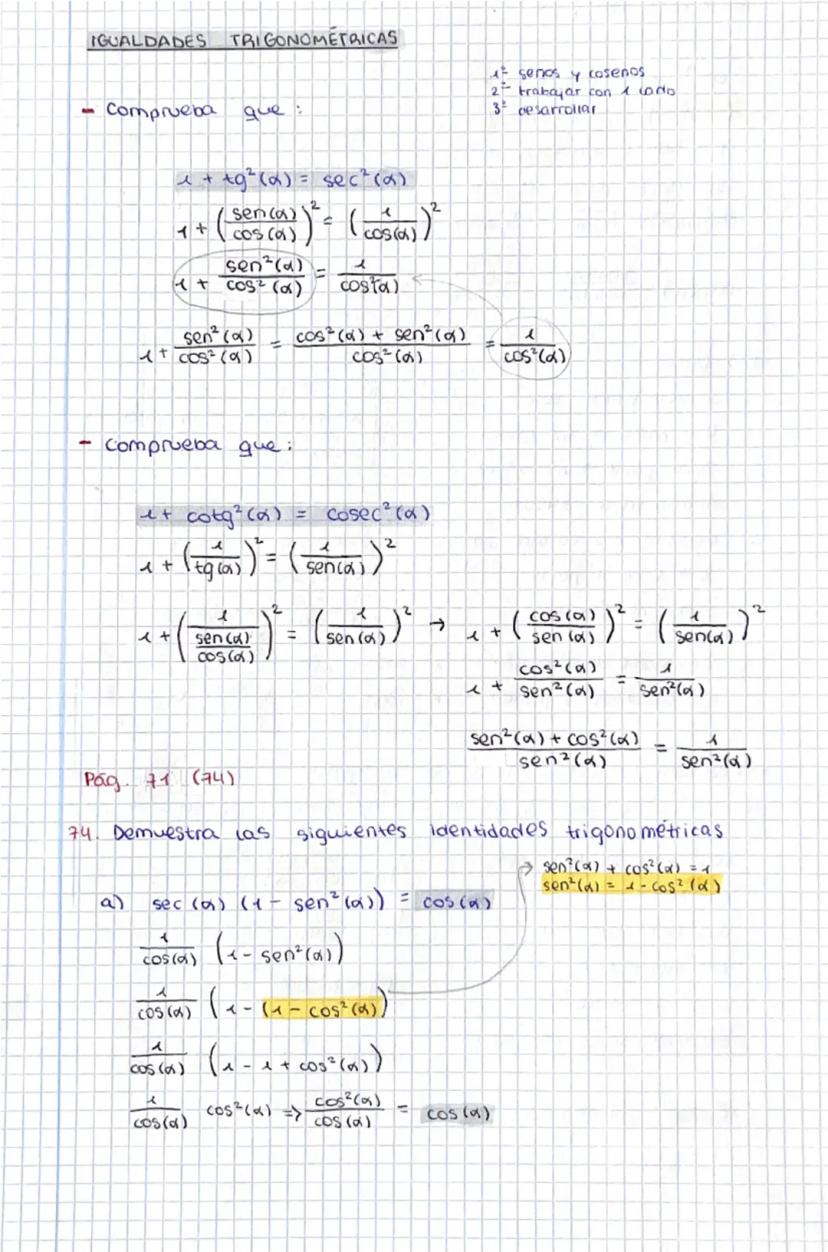 IGUALDADES TRIGONOMÉTRICAS
1º senos y cosenos
2º trabajar con 1 lado
3º desarrollar
- Comprueba que:
1 + tg²(α) = sec²(α)
1 + (sen(α)/cos(α))² = (1/cos(α))²
1 + sen²(α)/cos²(α) = 1/cos²(α)
1 + sen²(α)/cos²(α) = (cos²(α) + sen²(α))/cos²(α) = 1/cos²(α)
- Comprueba que:
1 + cotg²(α) = cosec²(α)
1 + (1/tg(α))² = (1/sen(α))²
1 + (1/(sen(α)/cos(α)))² = (1/sen(α))² → 1 + (cos(α)/sen(α))² = (1/sen(α))²
1 + cos²(α)/sen²(α) = 1/sen²(α)
(sen²(α) + cos²(α))/sen²(α) = 1/sen²(α)
Pág. 71 (74)
74. Demuestra las siguientes identidades trigonométricas
sen²(α) + cos²(α) = 1
sen²(α) = 1 - cos²(α)
a) sec(α) (1 - sen²(α)) = cos(α)
1/cos(α) (1 - sen²(α))
1/cos(α) (1 - (1 - cos²(α))
1/cos(α) (1 - 1 + cos²(α))
1/cos(α) cos²(α) => cos²(α)/cos(α) = cos(α)